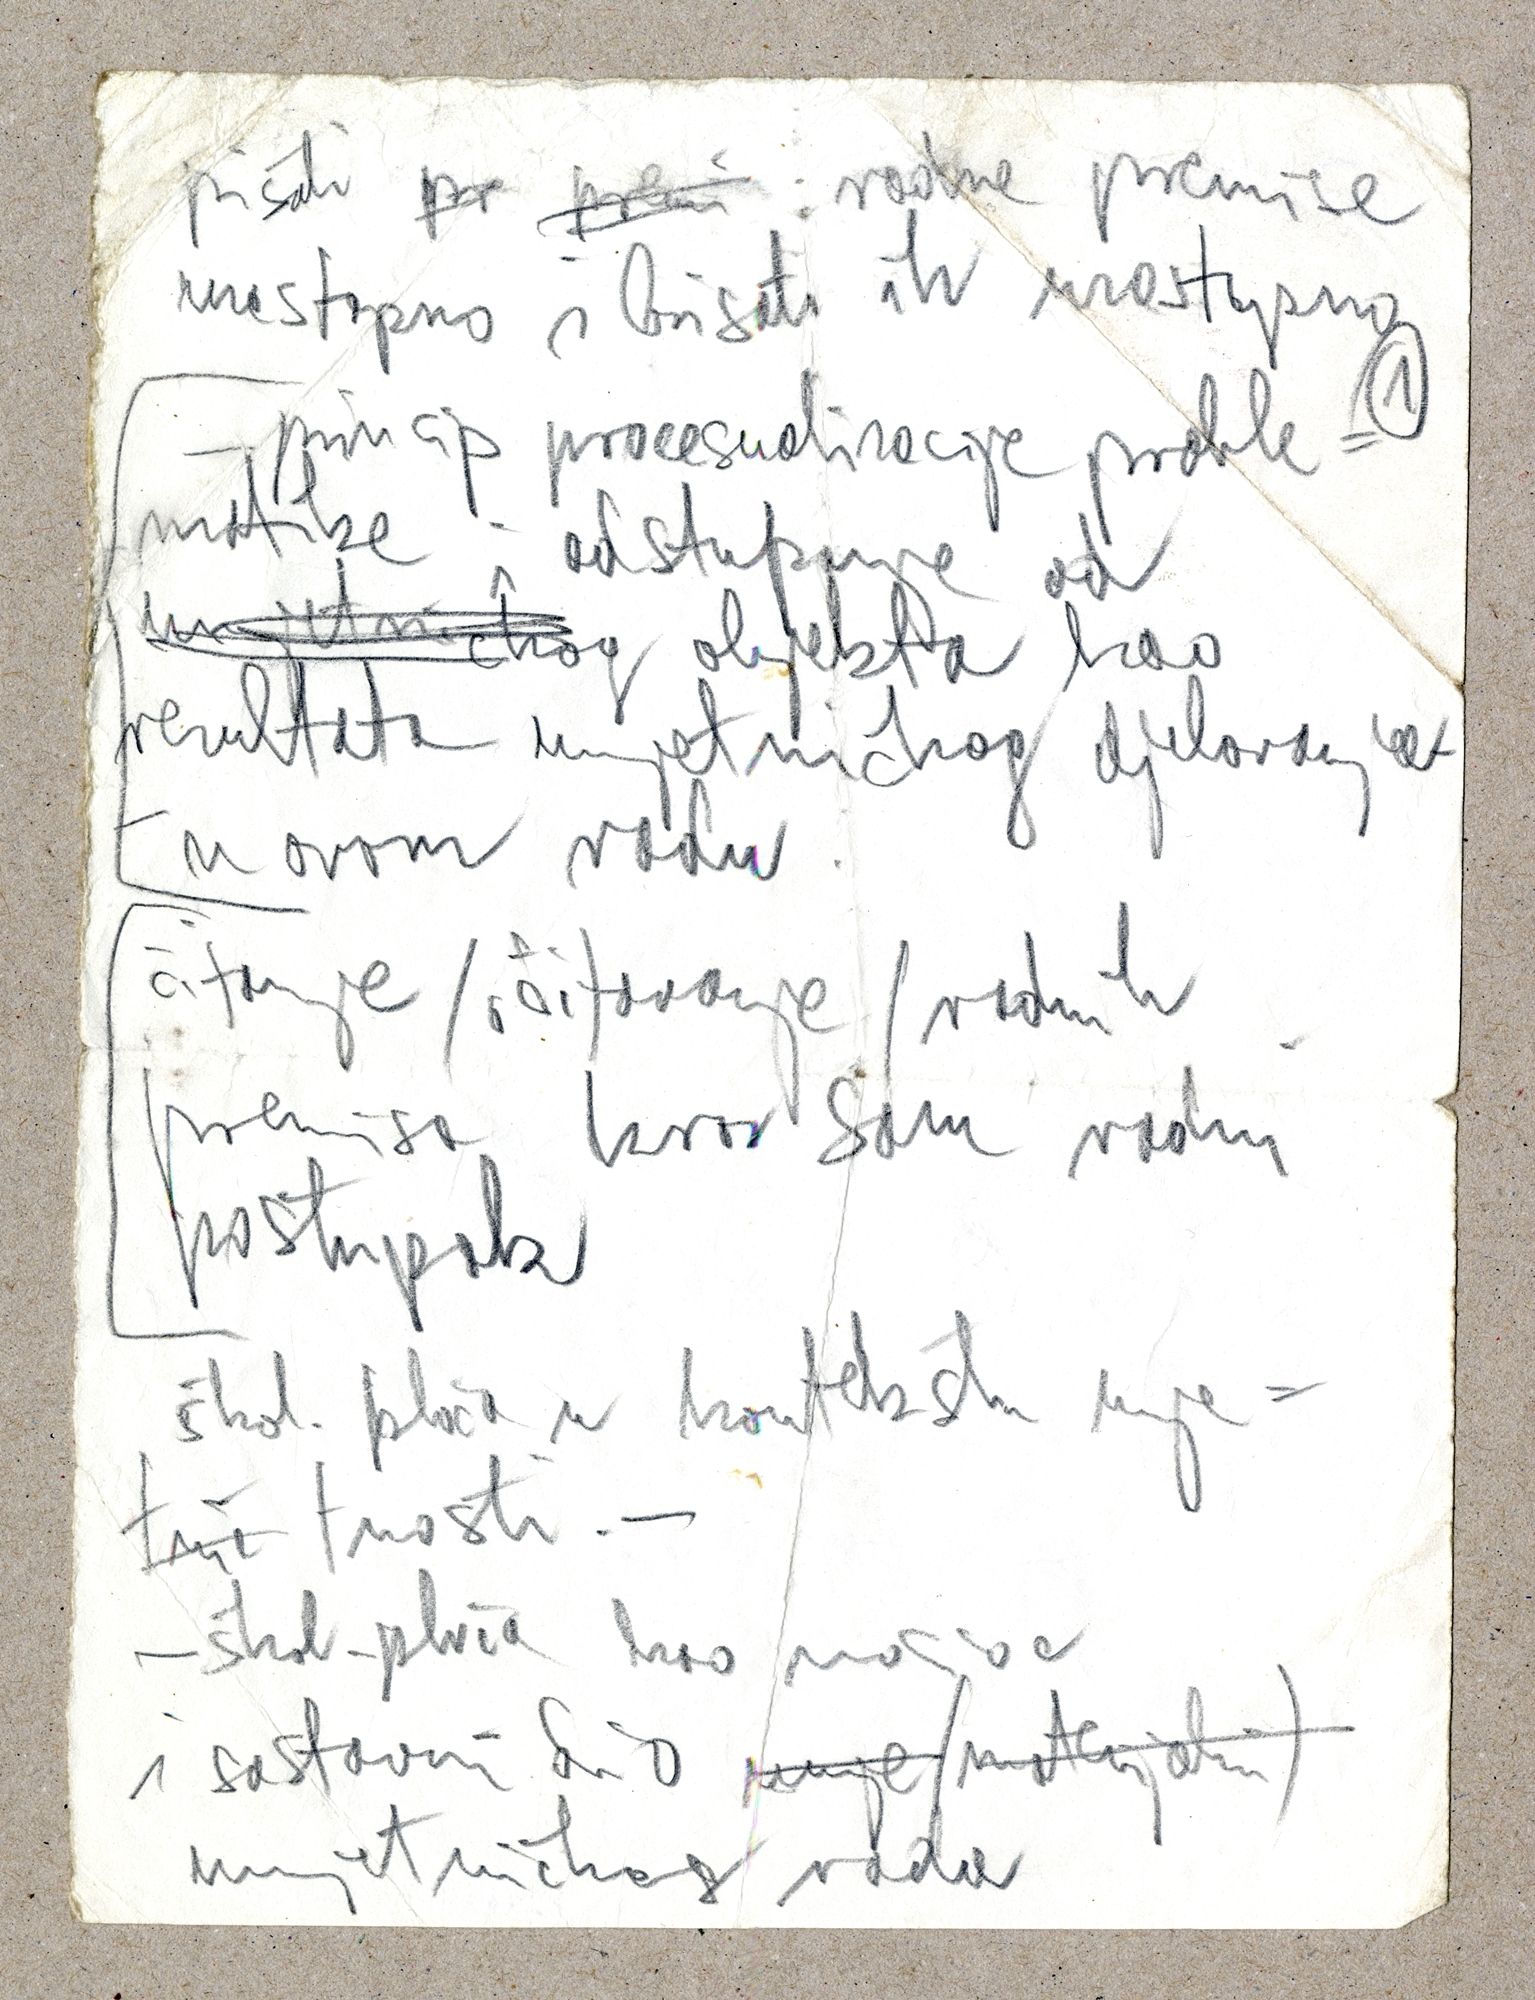 pisati pr premi radne premise
neestupno i brisati ih neostupno
①
– princip procesualizacije proble =
matike – odstupanje od
umjetničkog objekta kao
rezultata umjetničkog djelovanja
– u ovom radu.
čitanje / iščitavanje / radnih
premisa kroz sam radni
postupak
škol. ploča u kontekstu umje =
tnič tnosti. –
– škol-ploča kao
i sastavni dio umje (materijalni)
umjetničkog rada